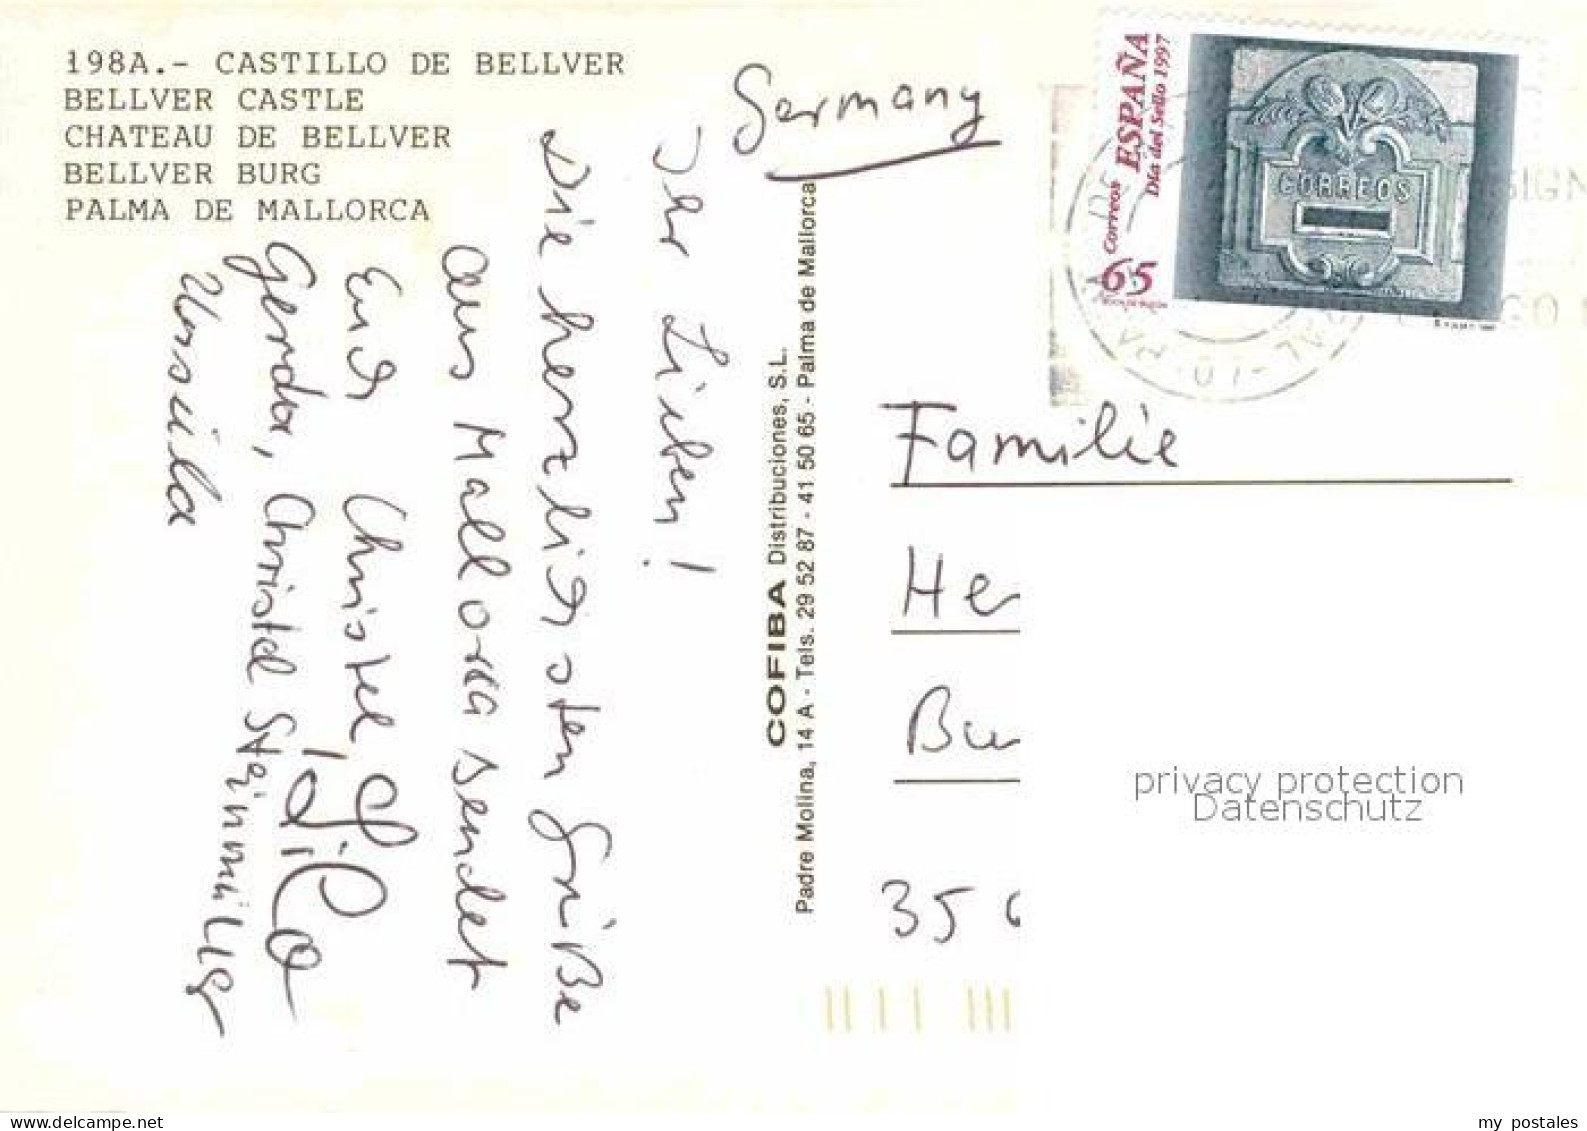 198A.- CASTILLO DE BELLVER
BELLVER CASTLE
CHATEAU DE BELLVER
BELLVER BURG
PALMA DE MALLORCA
Germany
Ihr Lieben!
Die herzlichsten Grüße
aus Mallorca sendet
Euch Christel
Gerda, Christel Steinmüller
Ursula
COFIBA Distribuciones, S.L.
Padre Molina, 14 A - Tels. 29 52 87 - 41 50 65 - Palma de Mallorca
Correos ESPAÑA
Día del Sello 1997
65
CORREOS
Familie
He
Bu
35
privacy protection
Datenschutz
my postales